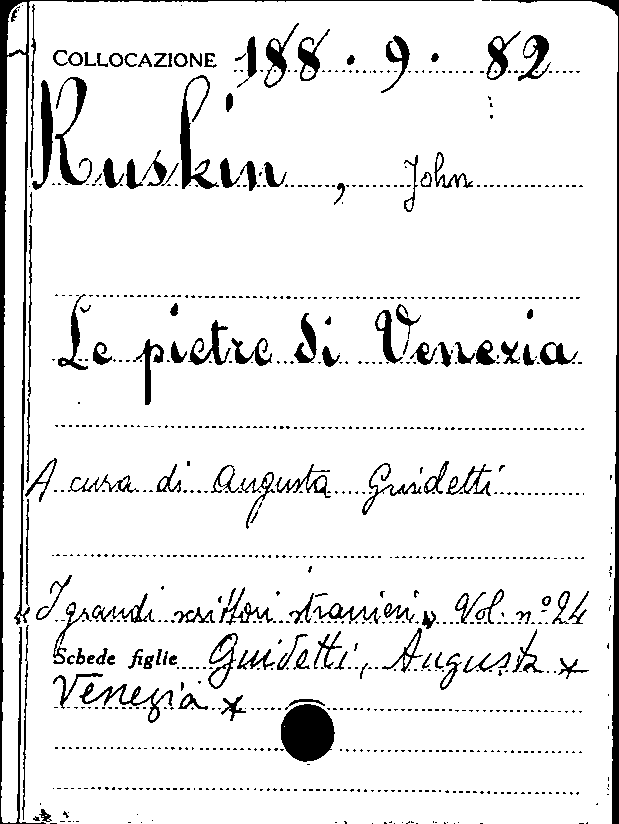 COLLOCAZIONE 188 · 9 · 82
Ruskin, John
Le pietre di Venezia
A cura di Augusta Guidetti
« I grandi scrittori stranieri » Vol. n° 24
Schede figlie Guidetti, Augusta *
Venezia *